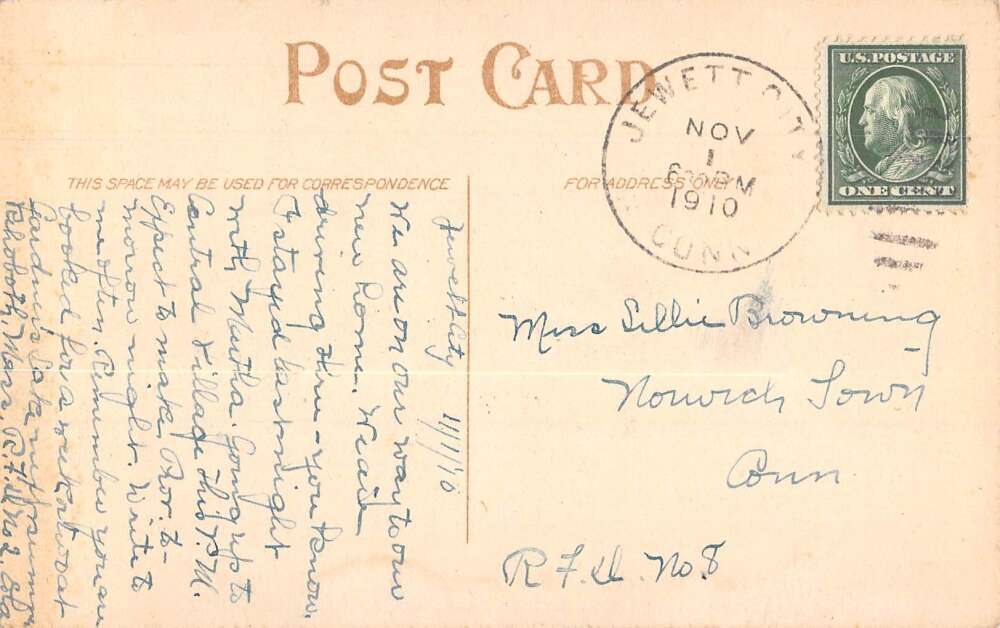 POST CARD
THIS SPACE MAY BE USED FOR CORRESPONDENCE
FOR ADDRESS ONLY
JEWETT CITY
NOV
1
6 30 PM
1910
CONN
U.S. POSTAGE
ONE CENT
Miss Lillie Browning
Norwich Town
Conn
R. F. D. No. 8
Jewett City 11/1/10
We are on our way to our
new home. We are
driving thru - you know.
I stayed last night
with Martha. Going up to
Central Village this P.M.
Expect to make Prov. to-
morrow night. Write to
me often. Remember you are
booked for a week at
Gardner's Lake next summer
Rhoboth, Mass. R.F.D. No 2.